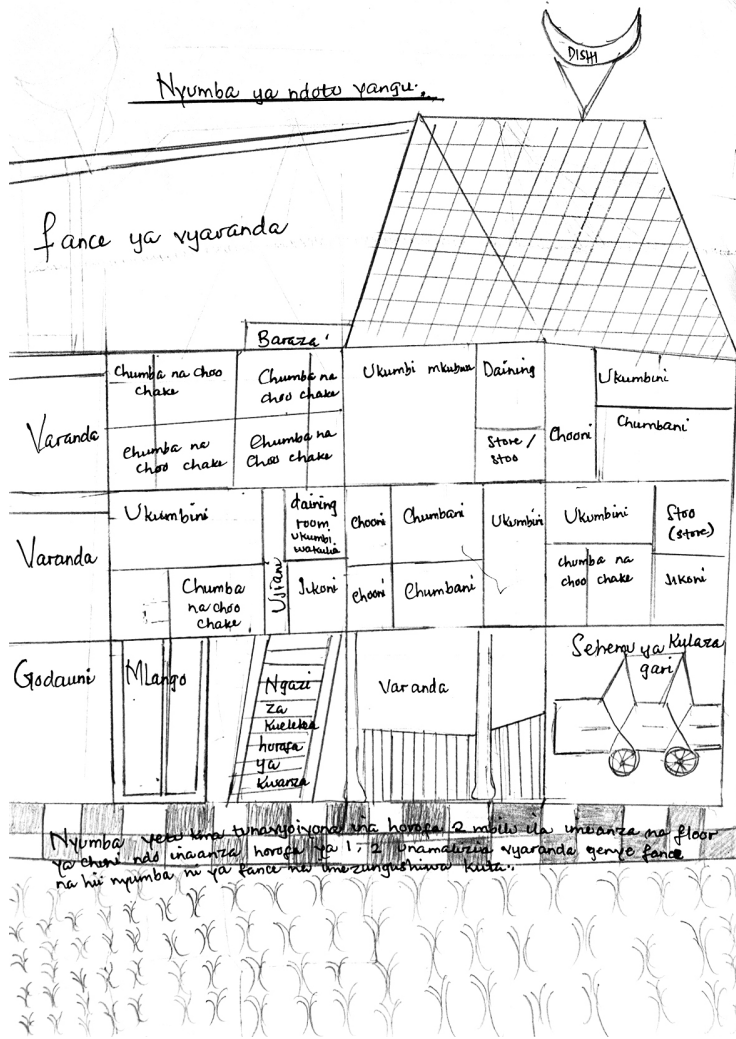 DISHI
Nyumba ya ndoto yangu.
fance ya vyavanda
Baraza
Chumba na choo
chake
Chumba na
choo chake
Ukumbi mkubwa
Daining
Ukumbini
Varanda
Chumba na
choo chake
Chumba na
Choo chake
Store /
stoo
Chooni
Chumbani
Ukumbini
Ujiani
daining
room
ukumbi
wakulia
Chooni
Chumbani
Ukumbini
Ukumbini
Stoo
(store)
Varanda
Chumba
na choo
chake
Jikoni
Chooni
Chumbani
chumba na
choo chake
Jikoni
Godauni
MLango
Ngazi
za
Kuelekea
horofa
ya
Kwanza
Varanda
Sehemu ya Kulaza
gari
Nyumba yetu kama tunavyoiyona ina horofa 2 mbili ila imeanza na floor
ya chini ndo inaanza horofa ya 1, 2 unamalizia vyaranda yenye fance
na hii nyumba ni ya fance na imezungushiwa kuta.